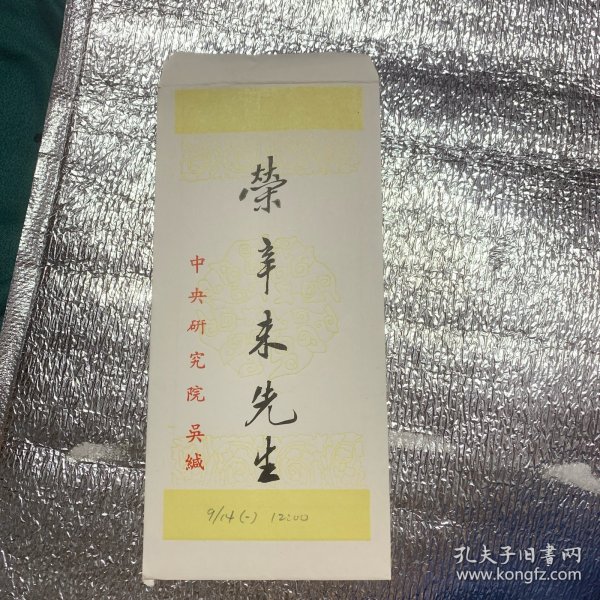 榮辛未先生
中央研究院 吳緘
9/14(一) 12:00
孔夫子旧書网
www.kongfz.com